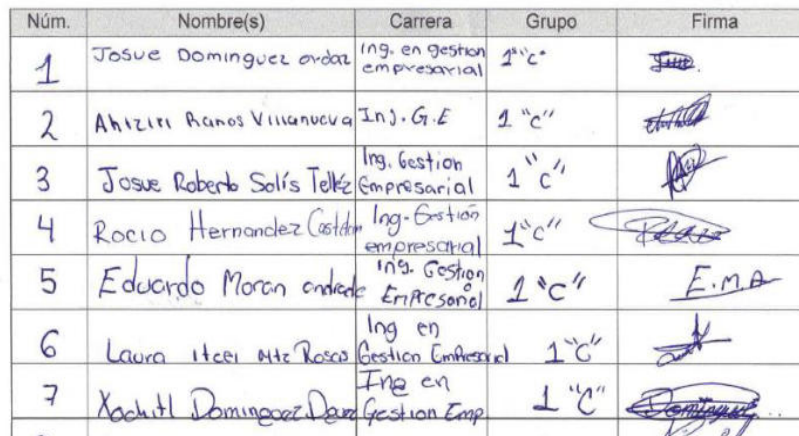 Núm. Nombre(s) Carrera Grupo Firma
1 Josue Dominguez ordaz Ing. en gestion empresarial 1 "c"
2 Ahiziri Ramos Villanueva Ing. G.E 1 "c"
3 Josue Roberto Solís Telléz Ing. Gestion Empresarial 1 "c"
4 Rocio Hernandez Ing. Gestión empresarial 1 "c"
5 Eduardo Moran andrade Ing. Gestion Empresarial 1 "C" E.M.A
6 Laura Itcel Rosas Ing en Gestion Empresarial 1 "C"
7 Xochitl Dominguez Ing en Gestion Emp 1 "C" Dominguez